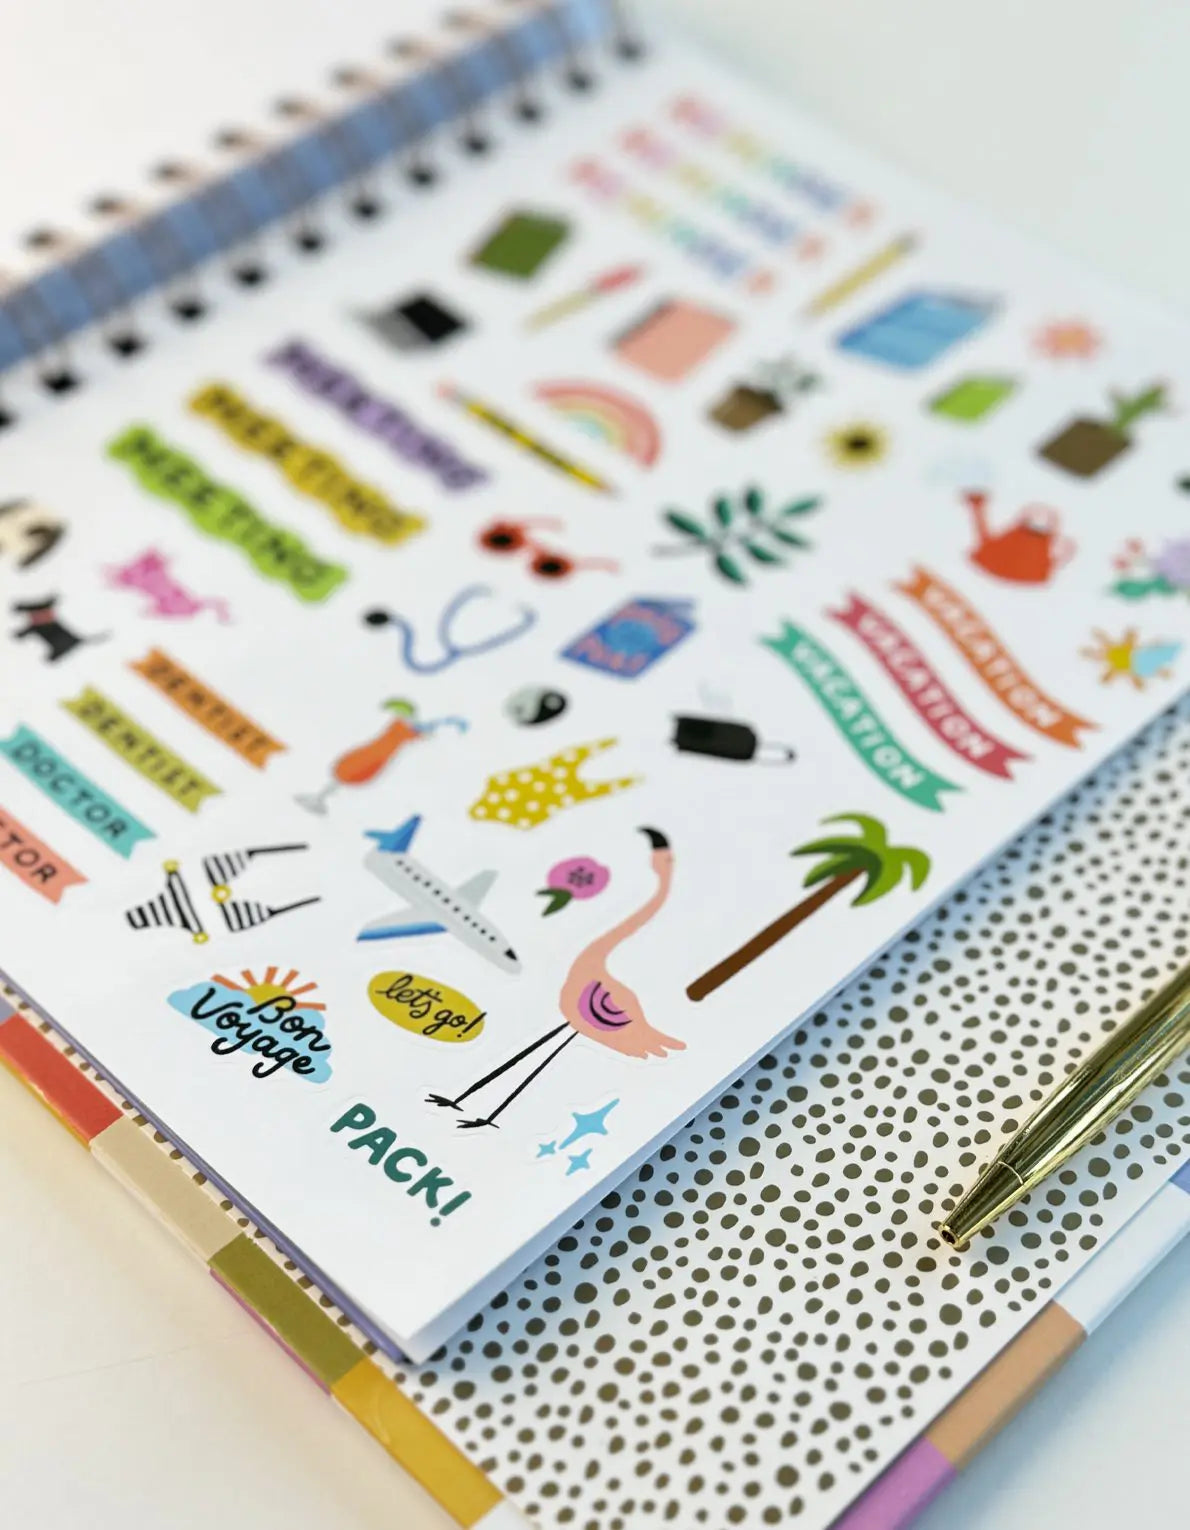 MEETING
MEETING
MEETING
VACATION
VACATION
VACATION
DENTIST
DENTIST
DOCTOR
TOR
Bon
Voyage
let's go!
PACK!